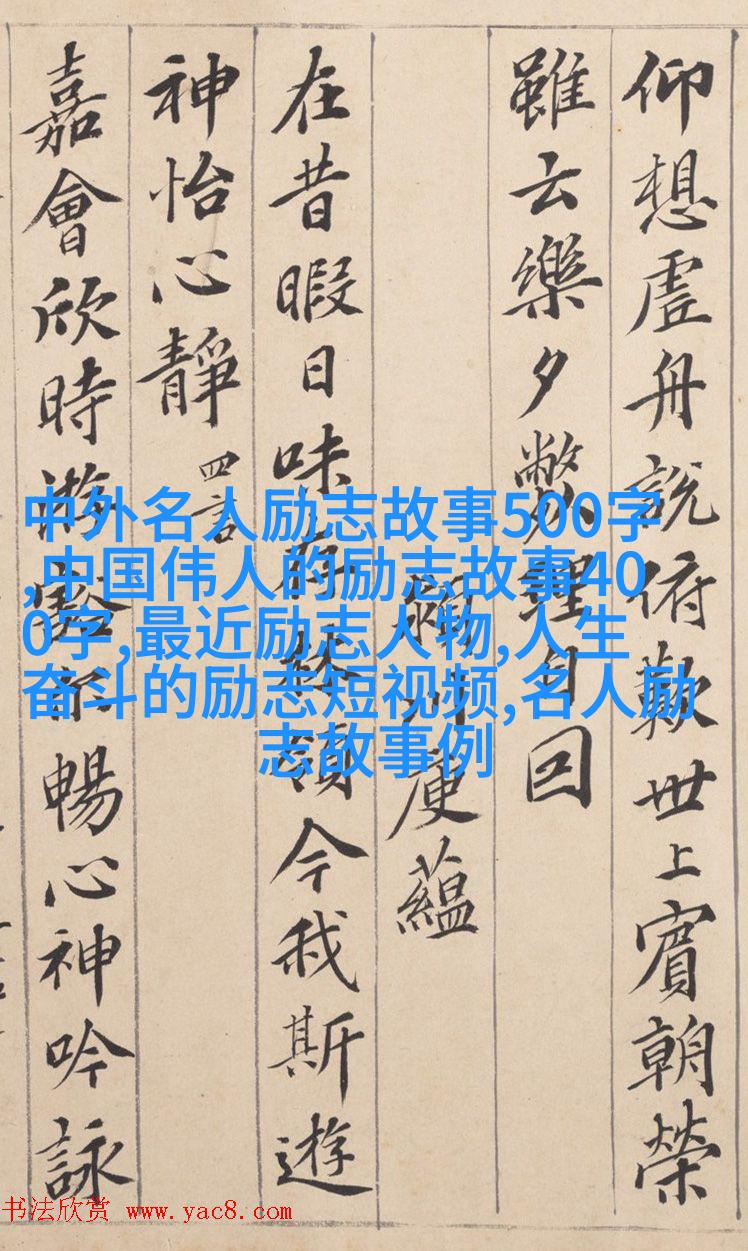 仰想虛舟說俯歎世上賓朝榮
雖云樂夕弊理自回
潁川庾蘊
在昔暇日味存林嶺今我斯遊
神怡心靜 四言
嘉會欣時游豁尔暢心神吟詠
中外名人励志故事500字
,中国伟人的励志故事40
0字,最近励志人物,人生
奋斗的励志短视频,名人励
志故事例
书法欣赏 www.yac8.com